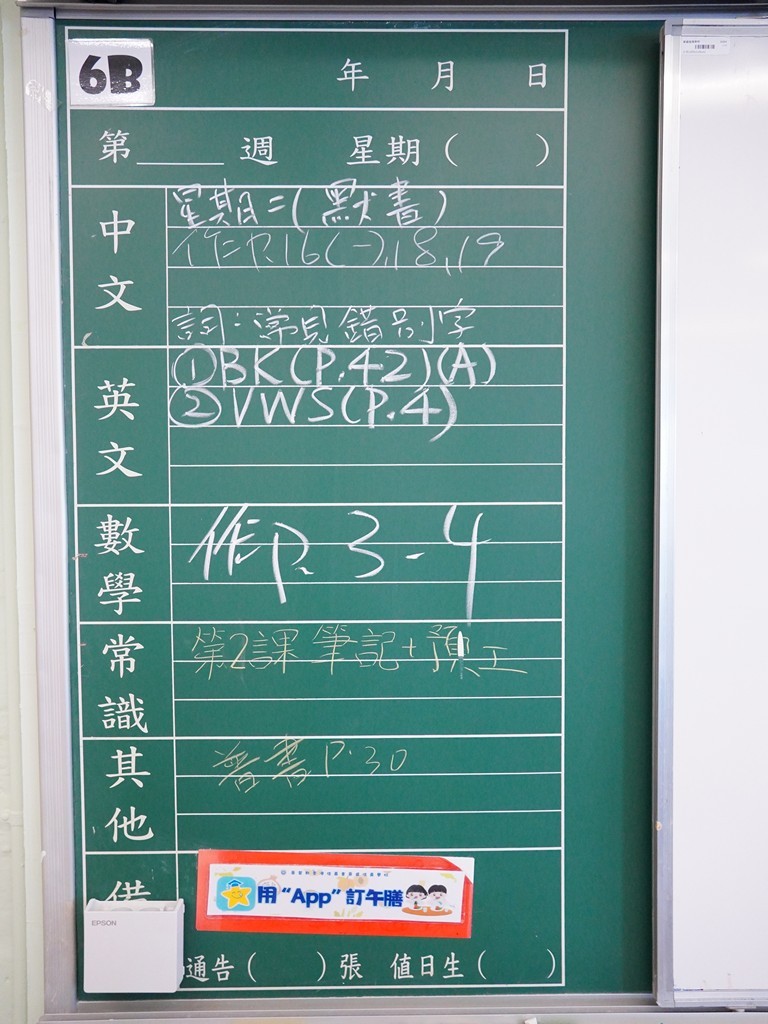 6B
年 月 日
第____週 星期( )
中文
星期二(默書)
作仁P.16(一),18,19
詞:常見錯別字
英文
①BK(P.42)(A)
②VWS(P.4)
數學
作P.3-4
常識
第2課筆記+預工
其他
普書P.30
備
用“App”訂午膳
EPSON
通告( )張 值日生( )